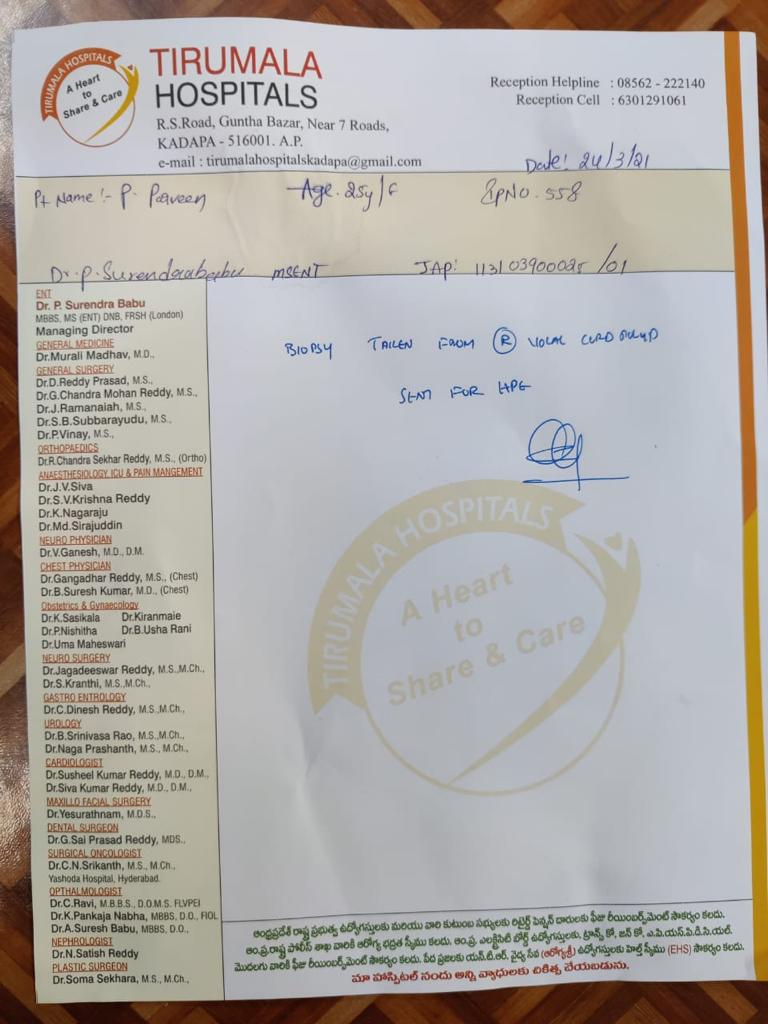 TIRUMALA HOSPITALS
A Heart
to
Share & Care
TIRUMALA
HOSPITALS
R.S.Road, Guntha Bazar, Near 7 Roads,
KADAPA - 516001. A.P.
e-mail : tirumalahospitalskadapa@gmail.com
Reception Helpline : 08562 - 222140
Reception Cell : 6301291061
Date: 24/3/21
Pt Name :- P. Parveen Age. 25y/F IPNO. 558
Dr. P. Surendrababu MSENT JAP: 113103900025/01
ENT
Dr. P. Surendra Babu
MBBS, MS (ENT) DNB, FRSH (London)
Managing Director
GENERAL MEDICINE
Dr.Murali Madhav, M.D.,
GENERAL SURGERY
Dr.D.Reddy Prasad, M.S.,
Dr.G.Chandra Mohan Reddy, M.S.,
Dr.J.Ramanaiah, M.S.,
Dr.S.B.Subbarayudu, M.S.,
Dr.P.Vinay, M.S.,
ORTHOPAEDICS
Dr.R.Chandra Sekhar Reddy, M.S., (Ortho)
ANAESTHESIOLOGY, ICU & PAIN MANGEMENT
Dr.J.V.Siva
Dr.S.V.Krishna Reddy
Dr.K.Nagaraju
Dr.Md.Sirajuddin
NEURO PHYSICIAN
Dr.V.Ganesh, M.D., D.M.
CHEST PHYSICIAN
Dr.Gangadhar Reddy, M.S., (Chest)
Dr.B.Suresh Kumar, M.D., (Chest)
Obstetrics & Gynaecology
Dr.K.Sasikala Dr.Kiranmaie
Dr.P.Nishitha Dr.B.Usha Rani
Dr.Uma Maheswari
NEURO SURGERY
Dr.Jagadeeswar Reddy, M.S.,M.Ch.,
Dr.S.Kranthi, M.S.,M.Ch.,
GASTRO ENTROLOGY
Dr.C.Dinesh Reddy, M.S.,M.Ch.,
UROLOGY
Dr.B.Srinivasa Rao, M.S.,M.Ch.,
Dr.Naga Prashanth, M.S., M.Ch.,
CARDIOLOGIST
Dr.Susheel Kumar Reddy, M.D., D.M.,
Dr.Siva Kumar Reddy, M.D., D.M.,
MAXILLO FACIAL SURGERY
Dr.Yesurathnam, M.D.S.,
DENTAL SURGEON
Dr.G.Sai Prasad Reddy, MDS.,
SURGICAL ONCOLOGIST
Dr.C.N.Srikanth, M.S., M.Ch.,
Yashoda Hospital, Hyderabad.
OPTHALMOLOGIST
Dr.C.Ravi, M.B.B.S., D.O.M.S. FLVPEI
Dr.K.Pankaja Nabha, MBBS, D.O., FIOL
Dr.A.Suresh Babu, MBBS, D.O.,
NEPHROLOGIST
Dr.N.Satish Reddy
PLASTIC SURGEON
Dr.Soma Sekhara, M.S., M.Ch.,
BIOPSY TAKEN FROM R VOCAL CORD POLYP
SENT FOR HPE
TIRUMALA HOSPITALS
A Heart
to
Share & Care
ఆంధ్రప్రదేశ్ రాష్ట్ర ప్రభుత్వ ఉద్యోగస్తులకు మరియు వారి కుటుంబ సభ్యులకు రిటైర్డ్ పెన్షన్ దారులకు ఫీజు రీయింబర్స్‌మెంట్ సౌకర్యం కలదు.
ఆం.ప్ర.రాష్ట్ర పోలీస్ శాఖ వారికి ఆరోగ్య భద్రత స్కీము కలదు. ఆం.ప్ర. ఎలక్ట్రిసిటి బోర్డ్ ఉద్యోగస్తులకు, ట్రాన్స్ కో, జన్ కో, ఎ.పి.యస్.పి.డి.సి.యల్.
మొదలగు వారికి ఫీజు రీయింబర్స్‌మెంట్ సౌకర్యం కలదు. పేద ప్రజలకు యన్.టి.ఆర్. వైద్య సేవ (ఆరోగ్యశ్రీ) ఉద్యోగస్తులకు హెల్త్ స్కీము (EHS) సౌకర్యం కలదు.
మా హాస్పిటల్ నందు అన్ని వ్యాధులకు చికిత్స చేయబడును.